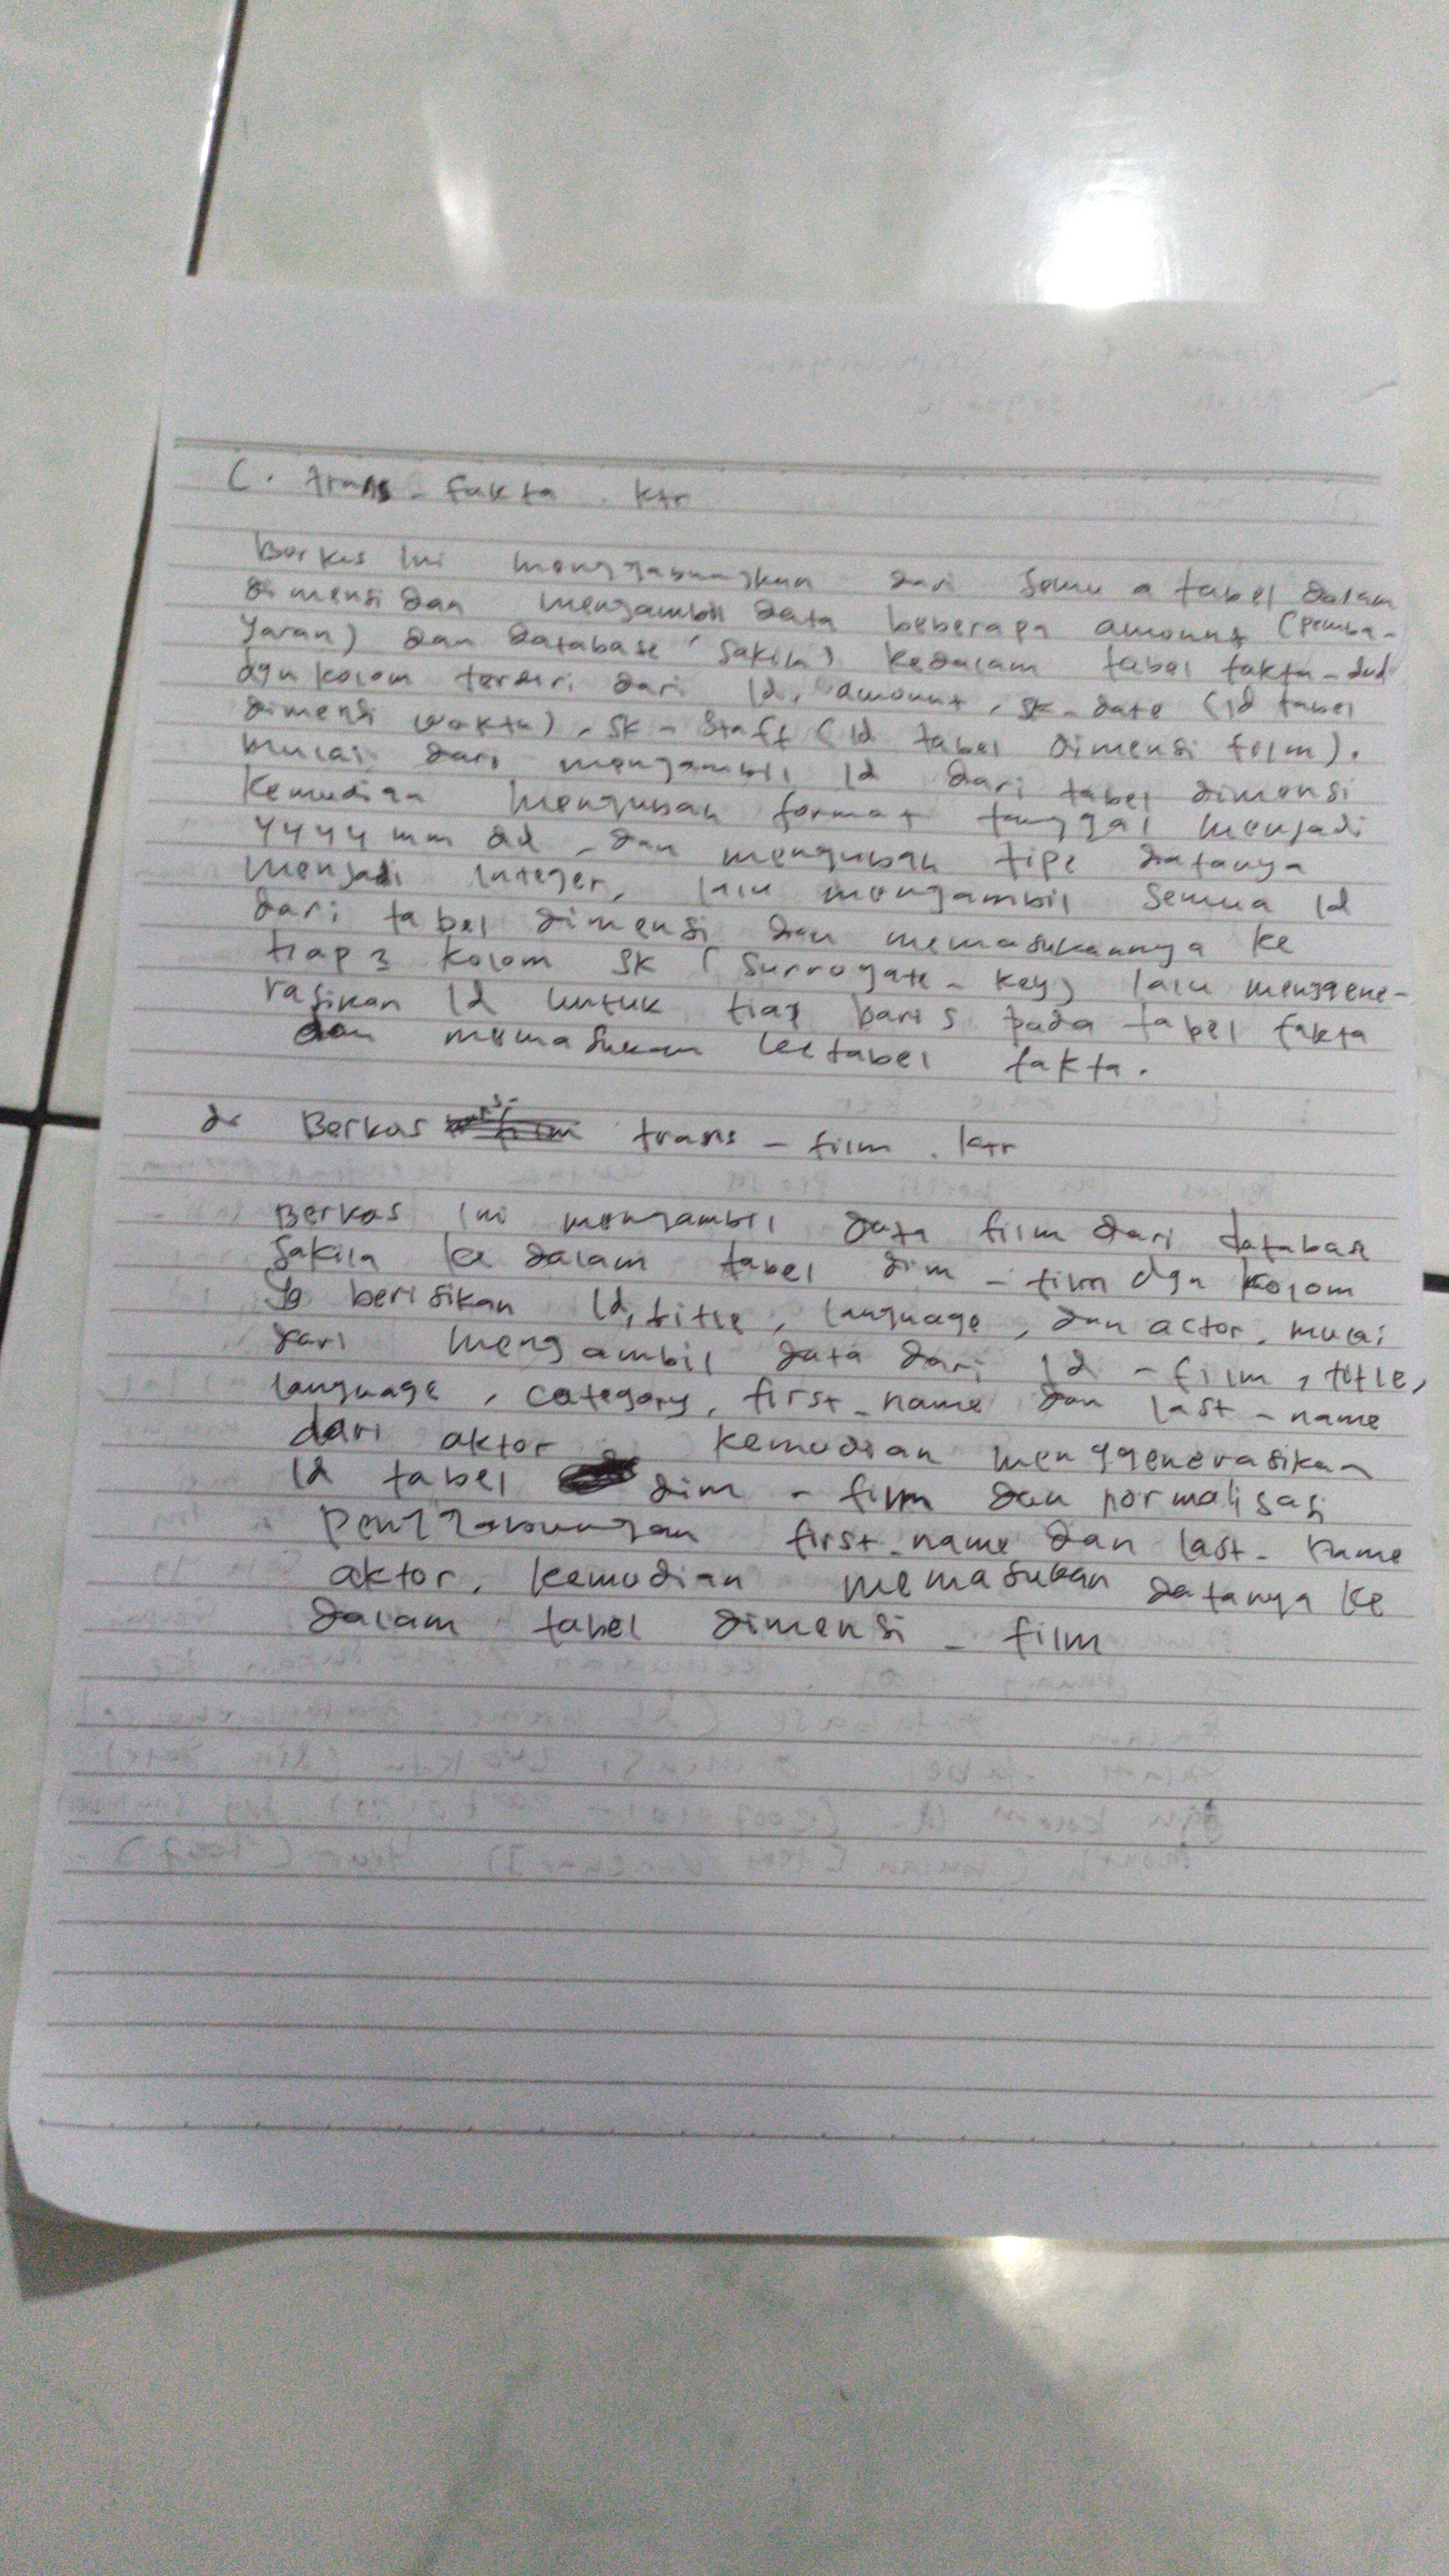 C. trans - fakta . ktr
Berkas ini menggabungkan dari semua tabel dalam
dimensi dan mengambil data beberapa amount (pemba-
yaran) dan database (sakila) kedalam tabel fakta - dvd
dgn kolom terdiri dari id, amount, sk - date (id tabel
dimensi waktu), sk - staff (id tabel dimensi film).
mulai dari mengambil id dari tabel dimensi
kemudian mengubah format tanggal menjadi
yyyy mm dd, dan mengubah tipe datanya
menjadi integer, lalu mengambil semua id
dari tabel dimensi dan memasukannya ke
tiap2 kolom SK (surrogate - key) lalu menggene-
rasikan id untuk tiap baris pada tabel fakta
dan memasukan ke tabel fakta.
d. Berkas trans - film . ktr
Berkas ini mengambil data film dari database
sakila ke dalam tabel dim - film dgn kolom
yg berisikan id, title, language, dan actor. mulai
dari mengambil data dari id - film, title,
language, category, first_name dan last - name
dari aktor kemudian menggenerasikan
id tabel dim - film dan normalisasi
penggabungan first_name dan last - name
aktor. kemudian memasukan datanya ke
dalam tabel dimensi - film